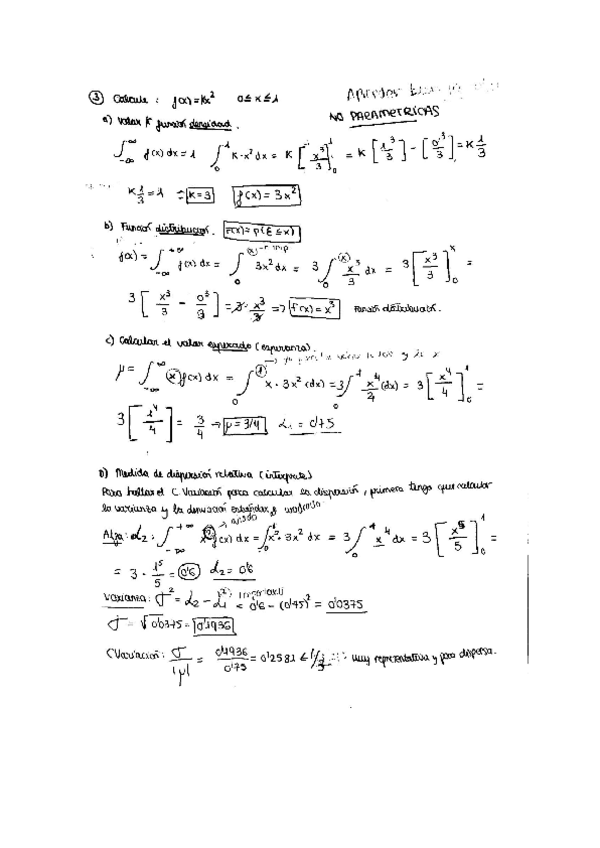 ③ Calcule : f(x) = Kx² 0 ≤ x ≤ 1
NO PARAMETRICAS
a) Valor K función densidad.
∫_{-∞}^{+∞} f(x) dx = 1 ∫_0^1 K·x² dx = K [x³/3]_0^1 = K [1³/3] - [0³/3] = K 1/3
K 1/3 = 1 = K = 3 f(x) = 3x²
b) Función distribución. F(x) = P(ξ ≤ x)
f(x) = ∫_{-∞}^{+∞} f(x) dx = ∫_0^x 3x² dx = 3 ∫_0^x x³/3 dx = 3 [x³/3]_0^x =
3 [x³/3 - 0³/3] = 3· x³/3 => f(x) = x³ Función distribución.
c) Calcular el valor esperado (esperanza).
μ = ∫_{-∞}^{+∞} x f(x) dx = ∫_0^1 x · 3x² (dx) = 3 ∫_0^1 x⁴/4 (dx) = 3 [x⁴/4]_0^1 =
3 [1⁴/4] = 3/4 → μ = 3/4 α₁ = 0'75
D) Medida de dispersión relativa (intérprete)
Para hallar el C. Variación para calcular la dispersión, primero tengo que calcular
la varianza y la desviación estándar
α₂ : ∫_{-∞}^{+∞} x² f(x) dx = ∫_0^1 x² · 3x² dx = 3 ∫_0^1 x⁴ dx = 3 [x⁵/5]_0^1 =
= 3 · 1⁵/5 = 0'6 α₂ = 0'6
Varianza: σ² = α₂ - α₁² = 0'6 - (0'75)² = 0'0375
σ = √0'0375 = 0'1936
CVariación: σ/|μ| = 0'1936/0'75 = 0'2581 ≤ 1/3 muy representativa y poco dispersa.